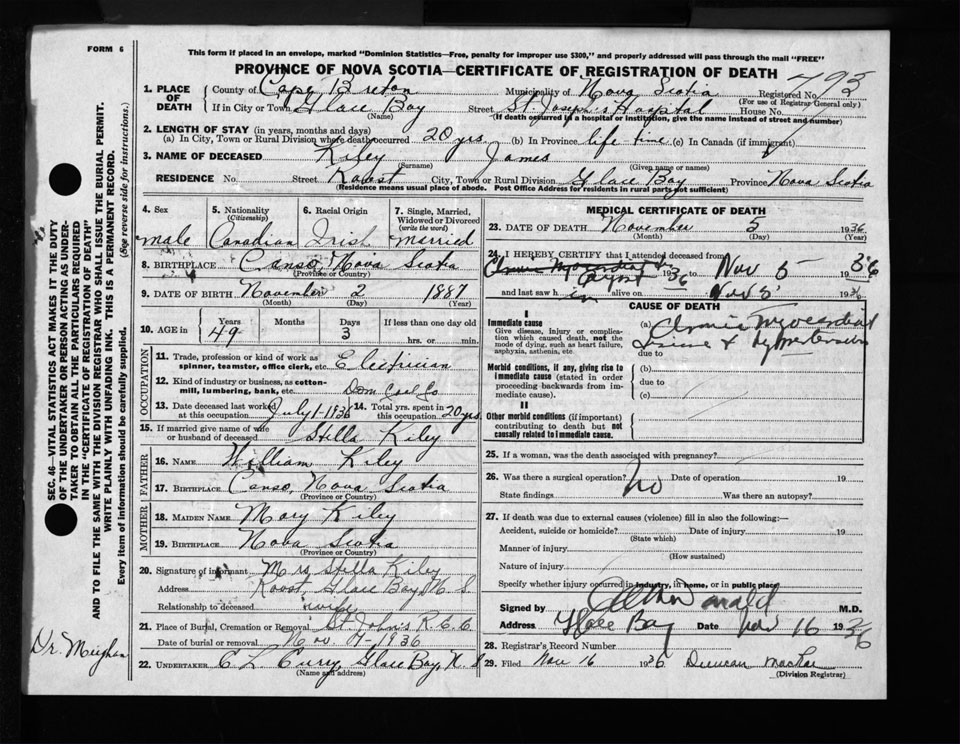 FORM 6
This form if placed in an envelope, marked "Dominion Statistics—Free, penalty for improper use $300," and properly addressed will pass through the mail "FREE"
PROVINCE OF NOVA SCOTIA—CERTIFICATE OF REGISTRATION OF DEATH
1. PLACE OF DEATH
County of Cape Breton Municipality of Nova Scotia Registered No. 793
(For use of Registrar General only)
If in City or Town Glace Bay Street St. Joseph's Hospital House No.
(Name) (If death occurred in a hospital or institution, give the name instead of street and number)
2. LENGTH OF STAY (in years, months and days)
(a) In City, Town or Rural Division where death occurred 20 yrs. (b) In Province life time (c) In Canada (if immigrant)
3. NAME OF DECEASED Kiley James
(Surname) (Given name or names)
RESIDENCE No. Street City, Town or Rural Division Glace Bay Province Nova Scotia
(Residence means usual place of abode. Post Office Address for residents in rural parts not sufficient)
4. Sex 5. Nationality (Citizenship) 6. Racial Origin 7. Single, Married, Widowed or Divorced (write the word)
male Canadian Irish married
8. BIRTHPLACE Canso, Nova Scotia
(Province or Country)
9. DATE OF BIRTH November 2 1887
(Month) (Day) (Year)
10. AGE in Years Months Days If less than one day old
49 3 hrs. or min.
OCCUPATION
11. Trade, profession or kind of work as spinner, teamster, office clerk, etc. Electrician
12. Kind of industry or business, as cotton-mill, lumbering, bank, etc. Dom Coal Co
13. Date deceased last worked at this occupation July 1-1936 14. Total yrs. spent in this occupation 20 yrs.
15. If married give name of wife or husband of deceased Stella Kiley
FATHER
16. NAME William Kiley
17. BIRTHPLACE Canso, Nova Scotia
(Province or Country)
MOTHER
18. MAIDEN NAME Mary Kiley
19. BIRTHPLACE Nova Scotia
(Province or Country)
20. Signature of informant Mrs Stella Kiley
Address Glace Bay, N.S.
Relationship to deceased wife
21. Place of Burial, Cremation or Removal St. John's R.C.C.
Date of burial or removal Nov. 7-1936
22. UNDERTAKER C L Curry, Glace Bay, N.S
(Name and address)
MEDICAL CERTIFICATE OF DEATH
23. DATE OF DEATH November 5 1936
(Month) (Day) (Year)
24. I HEREBY CERTIFY that I attended deceased from
1936 to Nov 5 1936
and last saw him alive on Nov 5 1936
CAUSE OF DEATH
I
Immediate cause
Give disease, injury or complication which caused death, not the mode of dying, such as heart failure, asphyxia, asthenia, etc.
(a) Chronic Myocardial
due to
Morbid conditions, if any, giving rise to immediate cause (stated in order proceeding backwards from immediate cause).
(b)
due to
(c)
II
Other morbid conditions (if important) contributing to death but not causally related to immediate cause.
25. If a woman, was the death associated with pregnancy?
26. Was there a surgical operation? No Date of operation 19
State findings Was there an autopsy?
27. If death was due to external causes (violence) fill in also the following:—
Accident, suicide or homicide? Date of injury 19
(State which)
Manner of injury
(How sustained)
Nature of injury
Specify whether injury occurred in industry, in home, or in public place
Signed by M.D.
Address Glace Bay Date Nov 16 1936
28. Registrar's Record Number
29. Filed Nov 16 1936 Duncan
(Division Registrar)
SEC. 46—VITAL STATISTICS ACT MAKES IT THE DUTY OF THE UNDERTAKER OR PERSON ACTING AS UNDERTAKER TO OBTAIN ALL THE PARTICULARS REQUIRED IN THE "CERTIFICATE OF REGISTRATION OF DEATH" AND TO FILE THE SAME WITH THE DIVISION REGISTRAR WHO SHALL ISSUE THE BURIAL PERMIT.
WRITE PLAINLY WITH UNFADING INK. THIS IS A PERMANENT RECORD.
Every item of information should be carefully supplied. (See reverse side for instructions.)
Dr. Meighan